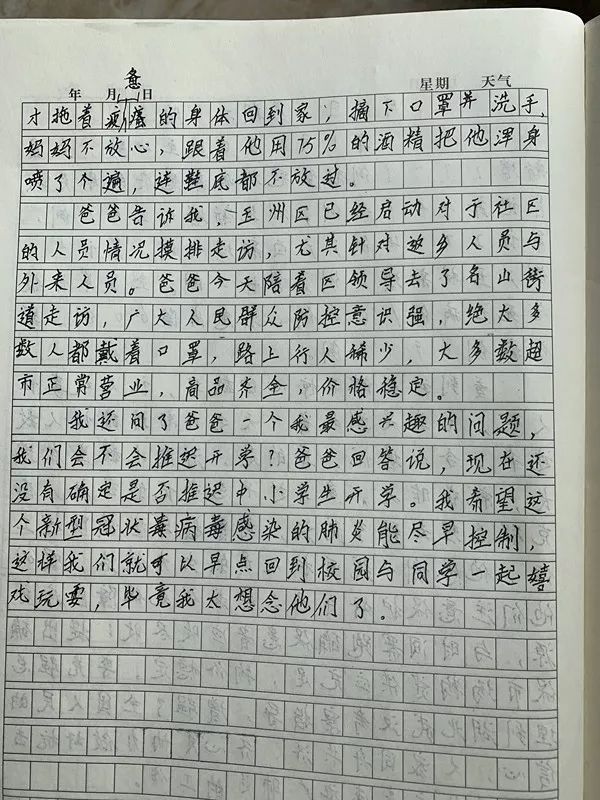 年 月 日 星期 天气
惫
才拖着疲的身体回到家，摘下口罩并洗手，
妈妈不放心，跟着他用75%的酒精把他浑身
喷了个遍，连鞋底都不放过。
爸爸告诉我，玉州区已经启动对于社区
的人员情况摸排走访，尤其针对返乡人员与
外来人员。爸爸今天陪着区领导去了名山街
道走访，广大人民群众防控意识强，绝大多
数人都戴着口罩，路上行人稀少，大多数超
市正常营业，商品齐全，价格稳定。
我还问了爸爸一个我最感兴趣的问题，
我们会不会推迟开学？爸爸回答说，现在还
没有确定是否推迟中小学生开学。我希望这
个新型冠状毒病毒感染的肺炎能尽早控制，
这样我们就可以早点回到校园与同学一起嬉
戏玩耍，毕竟我太想念他们了。